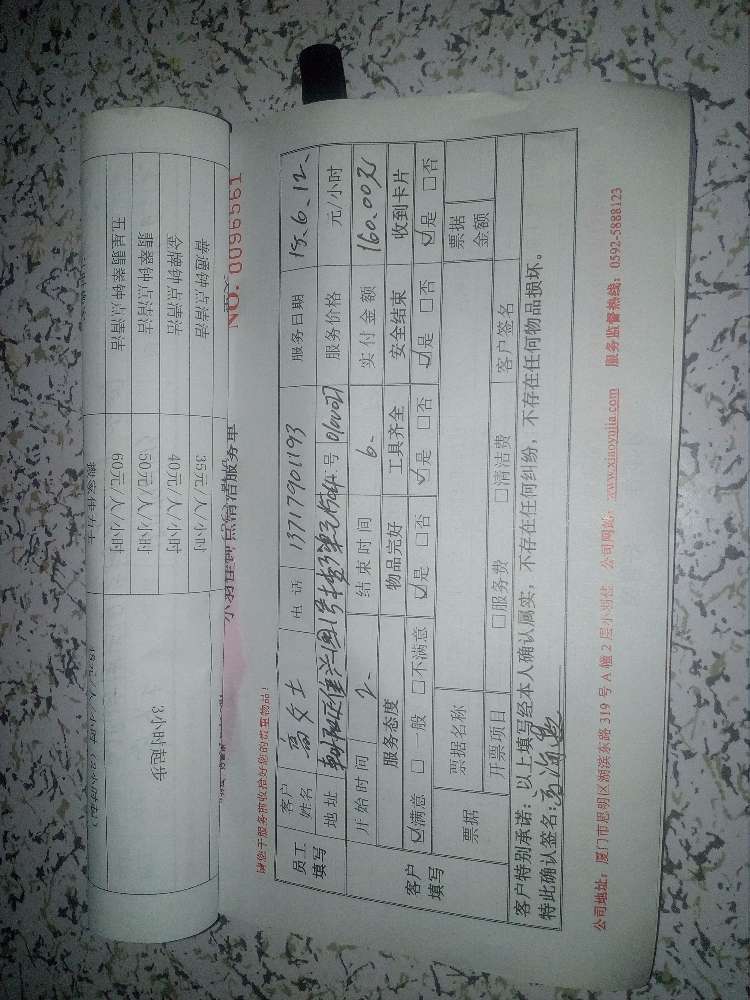 普通钟点清洁 35元/人/小时 3小时起步
金牌钟点清洁 40元/人/小时
翡翠钟点清洁 50元/人/小时
五星翡翠钟点清洁 60元/人/小时
NO. 0096561
请您于服务前收拾好您的贵重物品!
员工填写 客户姓名 高女士 电话 13717901193 服务日期 15.6.12.
地址 服务价格 元/小时
开始时间 2. 结束时间 6. 实付金额 160.00元
客户填写 服务态度 物品完好 工具齐全 安全结束 收到卡片
☑满意 □一般 □不满意 ☑是 □否 ☑是 □否 ☑是 □否 ☑是 □否
票据 票据名称 票据金额
开票项目 □服务费 □清洁费 客户签名
客户特别承诺:以上填写经本人确认属实,不存在任何纠纷,不存在任何物品损坏。
特此确认签名:
公司地址:厦门市思明区湖滨东路 319 号 A 幢 2 层小羽佳 公司网址:www.xiaoyujia.com 服务监督热线:0592-5888123